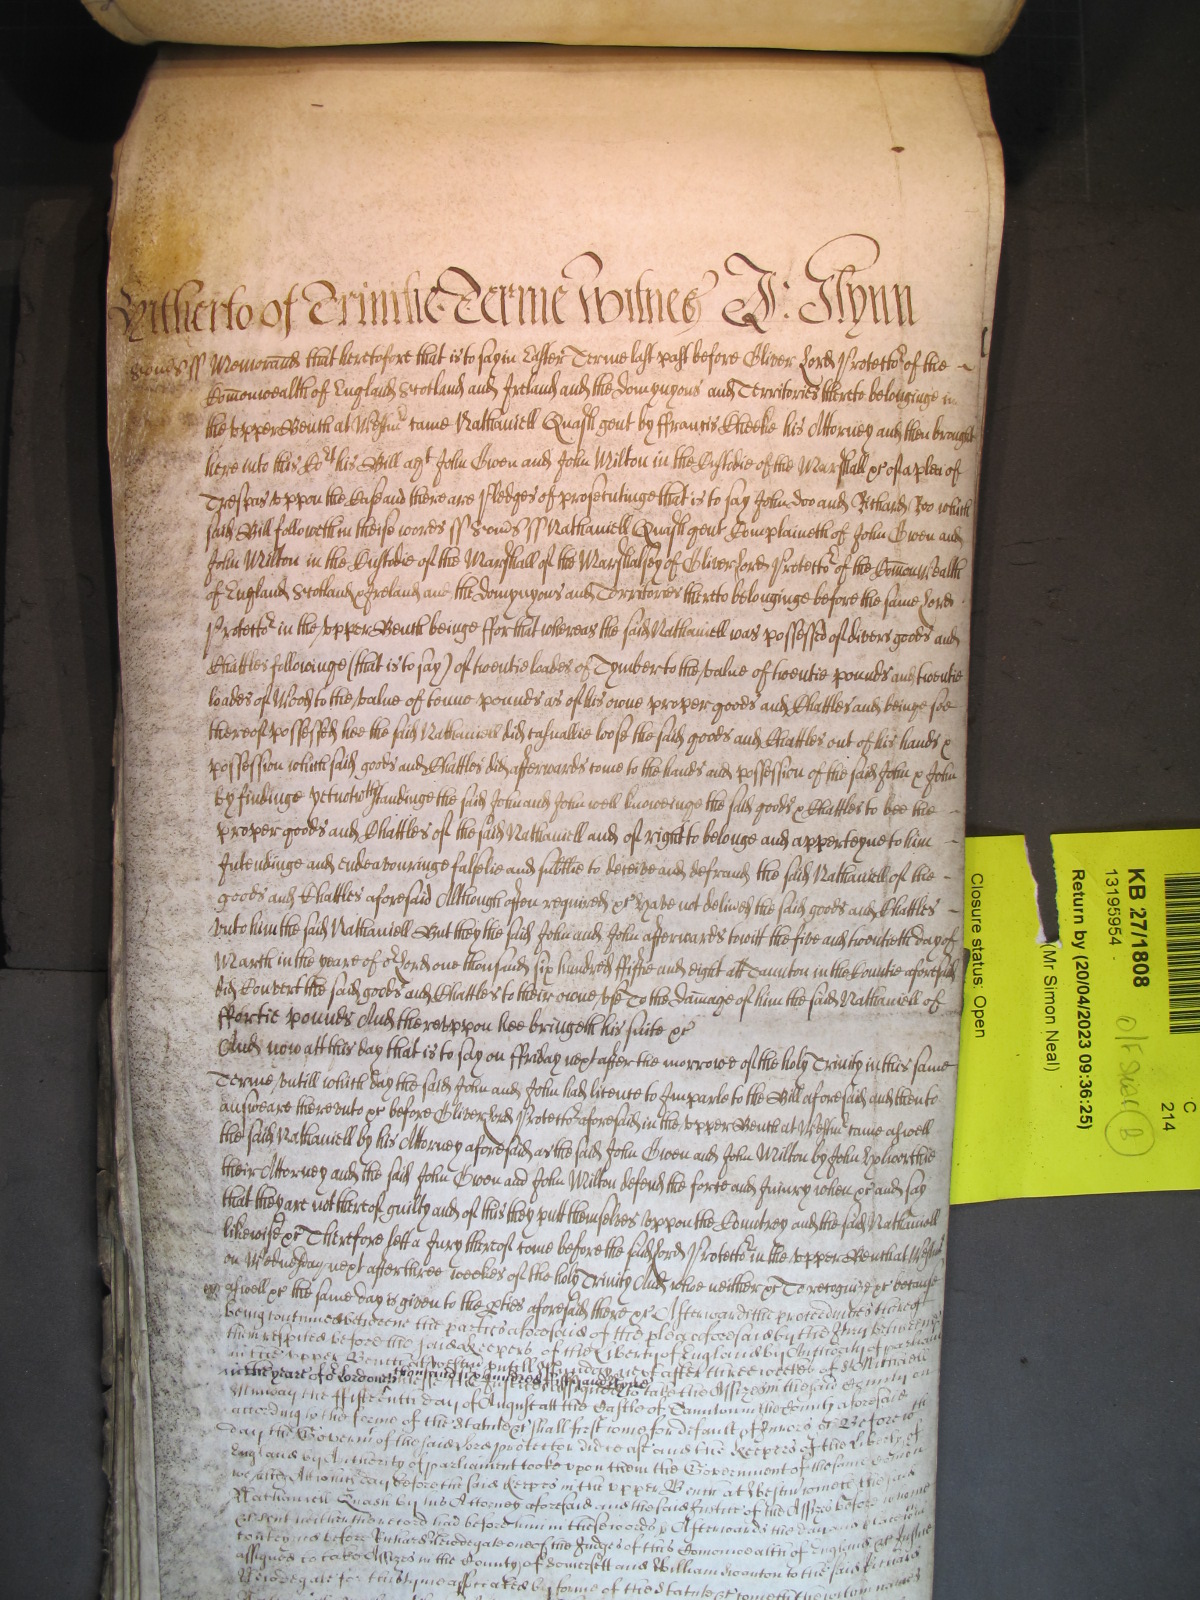 Hitherto of Trinitie Terme Witnes J: Glynn
Memorand that heretofore that is to say in Easter Terme last past before Oliver Lord Protector of the
Comonwealth of England Scotland and Ireland and the Domynyons and Territories thereto belonginge in
the upper Bench at Westmr came Nathaniell Quash gent by ffrancis Cheeke his Attorney and then brought
here into this Cort his Bill agt John Owen and John Milton in the Custodie of the Marshall &c of a plea of
Trespas uppon the Case and there are Pledges of prosecutinge that is to say John Doo and Richard Roo which
said Bill followeth in theise words ss Somds ss Nathaniell Quash gent Complaineth of John Owen and
John Milton in the Custodie of the Marshall of the Marshalsey of Oliver Lord Protector of the Comonwealth
of England Scotland & Ireland and the Domynyons and Territories thereto belonginge before the same Lord
Protector in the upper Bench beinge ffor that whereas the said Nathaniell was possessed of divers goods and
Chattles followinge (that is to say) of twentie loades of Tymber to the value of twentie pounds and twentie
loades of Wood to the value of tenne pounds as of his owne proper goods and Chattles and beinge soe
thereof possessed hee the said Nathaniell did casuallie loose the said goods and Chattles out of his hands &
possession which said goods and Chattles did afterwards come to the hands and possession of the said John & John
by findinge yet notwthstandinge the said John and John well knoweinge the said goods & Chattles to bee the
proper goods and Chattles of the said Nathaniell and of right to belonge and apperteyne to him
Intendinge and Endeavouringe falslie and subtlie to deceive and defraud the said Nathaniell of the
goods and Chattles aforesaid Although often required &c have not delived the said goods and Chattles
unto him the said Nathaniell But they the said John and John afterwards towitt the five and twentieth day of
March in the yeare of or Lord one thousand six hundred ffiftie and eight att Taunton in the Countie aforesaid
did Convert the said goods and Chattles to their owne use To the Damage of him the said Nathaniell of
ffortie pounds And thereuppon hee bringeth his suite &c
And now att this day that is to say on ffriday next after the morrowe of the holy Trinity in this same
Terme untill which day the said John and John had licence to Imparle to the Bill aforesaid and then to
answeare thereunto &c before Oliver Lord Protector aforesaid in the upper Bench at Westmr came aswell
the said Nathaniell by his Attorney aforesaid as the said John Owen and John Milton by John
their Attorney and the said John Owen and John Milton defend the force and Iniury when &c and say
that they are not thereof guilty and of this they putt themselves uppon the Countrey and the said Nathaniell
likewise &c Therefore lett a Jury thereof come before the said Lord Protector in the upper Bench at Westmr
on Wednesday next after three weekes of the holy Trinity And who neither &c To recognise &c because
aswell &c the same day is given to the pties aforesaid there &c Afterwards the proces thereof
being continued betweene the parties aforesaid of the plea aforesaid by the Jury betweene
them respited before the Keepers of the Liberty of England by Authority of parliamt
in the upper Bench at Westmr untill next after three weekes of St Michaell
in the yeare of or Lord one thousand six hundred fifty and to take the Assizes in the said County on
Munday the ffifteenth day of August att the Castle of Taunton in the County aforesaid
according to the forme of the Statute &c shall first come for default of Jurors &c Before wch
day the Governmt of the said Lord protector did cease and the Keepers of the Liberty of
England by Authority of parliament tooke upon them the Government of the same
att which day before the said Keepers in the upper Bench at Westmr cometh the said
Nathaniell Quash by his Attorney aforesaid and the said Justice of the Assizes before whome
&c sent hither the record had before him in these words Afterwards the day and place within
conteyned before Richard Newdegate one of the Judges of this Comonwealth of England &c Justice
assigned to take Assizes in the County of Somersett and William to the said Richard
Newdegate for this tyme associated by forme of the Statute &c cometh the within named
Closure status: Open
(Mr Simon Neal)
Return by (20/04/2023 09:36:25)
13195954
KB 27/1808
C
214